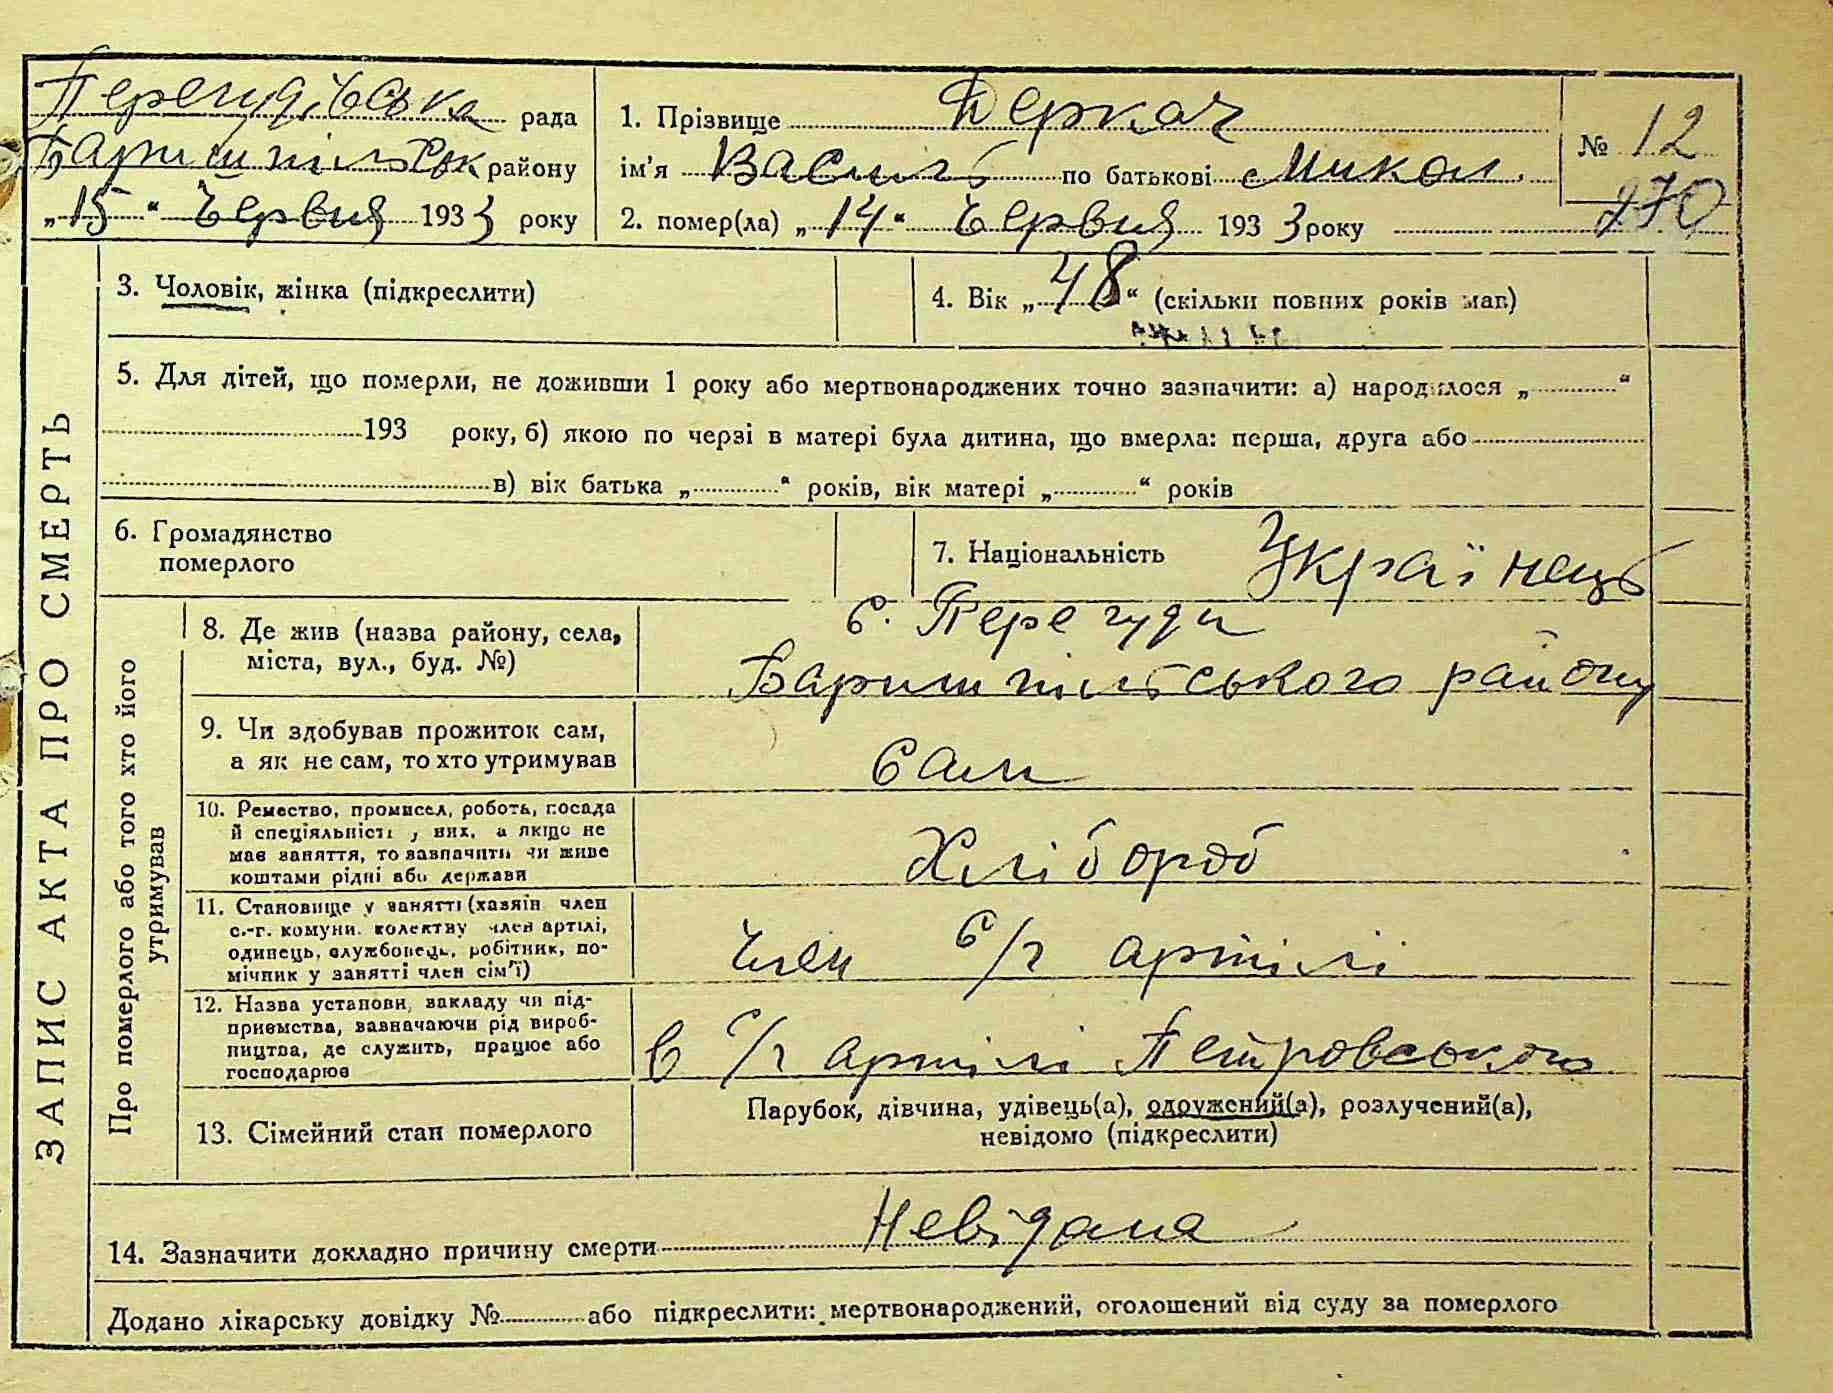 Перегудівська рада
Баришпільськ району
„15“ Червня 1933 року
1. Прізвище Деркач
ім'я Василь по батькові Микол.
2. помер(ла) „14“ Червня 1933 року
№ 12
270
ЗАПИС АКТА ПРО СМЕРТЬ
3. Чоловік, жінка (підкреслити)
4. Вік „48“ (скільки повних років мав)
5. Для дітей, що померли, не доживши 1 року або мертвонароджених точно зазначити: а) народилося „ “
193 року, б) якою по черзі в матері була дитина, що вмерла: перша, друга або
в) вік батька „ “ років, вік матері „ “ років
6. Громадянство
померлого
7. Національність Українець
Про померлого або того хто його
утримував
8. Де жив (назва району, села,
міста, вул., буд. №)
с. Перегуди
Баришпільського району
9. Чи здобував прожиток сам,
а як не сам, то хто утримував
сам
10. Ремество, промисел, робота, посада
й спеціяльність у них, а якщо не
має заняття, то зазначити чи живе
коштами рідні або держави
Хлібороб
11. Становище у занятті (хазяїн член
с.-г. комуни, колективу член артілі,
одинець, службовець, робітник, по-
мічник у занятті член сім'ї)
Член с/г артілі
12. Назва установи, закладу чи під-
приємства, зазначаючи рід вироб-
ництва, де служить, працює або
господарює
в с/г артілі Петровського
13. Сімейний стан померлого
Парубок, дівчина, удівець(а), одружений(а), розлучений(а),
невідомо (підкреслити)
14. Зазначити докладно причину смерти Невідана
Додано лікарську довідку № або підкреслити: мертвонароджений, оголошений від суду за померлого